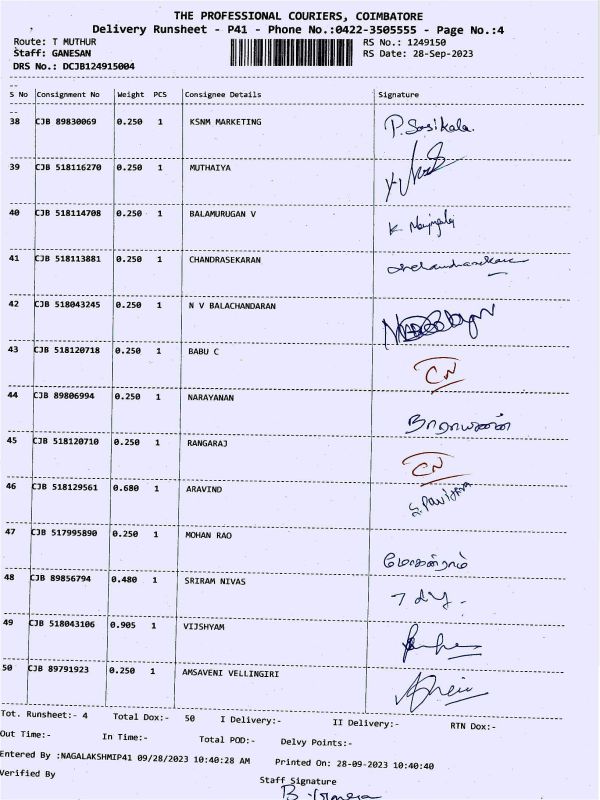 THE PROFESSIONAL COURIERS, COIMBATORE
Delivery Runsheet - P41 - Phone No.:0422-3505555 - Page No.:4
Route: T MUTHUR RS No.: 1249150
Staff: GANESAN RS Date: 28-Sep-2023
DRS No.: DCJB124915004
S No Consignment No Weight PCS Consignee Details Signature
38 CJB 89830069 0.250 1 KSNM MARKETING P. Sasikala.
39 CJB 518116270 0.250 1 MUTHAIYA
40 CJB 518114708 0.250 1 BALAMURUGAN V
41 CJB 518113881 0.250 1 CHANDRASEKARAN
42 CJB 518043245 0.250 1 N V BALACHANDARAN
43 CJB 518120718 0.250 1 BABU C CN
44 CJB 89806994 0.250 1 NARAYANAN நாராயணன்
45 CJB 518120710 0.250 1 RANGARAJ CN
46 CJB 518129561 0.680 1 ARAVIND S. Pavithra
47 CJB 517995890 0.250 1 MOHAN RAO மோகன்ராம்
48 CJB 89856794 0.480 1 SRIRAM NIVAS
49 CJB 518043106 0.905 1 VIJSHYAM
50 CJB 89791923 0.250 1 AMSAVENI VELLINGIRI
Tot. Runsheet:- 4 Total Dox:- 50 I Delivery:- II Delivery:- RTN Dox:-
Out Time:- In Time:- Total POD:- Delvy Points:-
Entered By :NAGALAKSHMIP41 09/28/2023 10:40:28 AM Printed On: 28-09-2023 10:40:40
Verified By Staff Signature